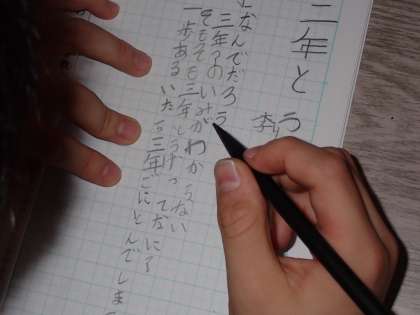 二年と
李
なんでだろう
三年?のいみがわからない
そもそも三年とうげってなに?
一歩あるいたら三年ごにとんでしま